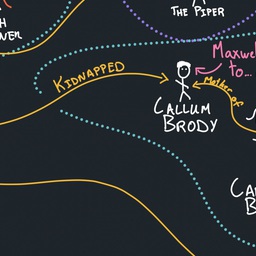 THE PIPER
Maxwel
to...
KIDNAPPED
Mother of
CALLUM
BRODY